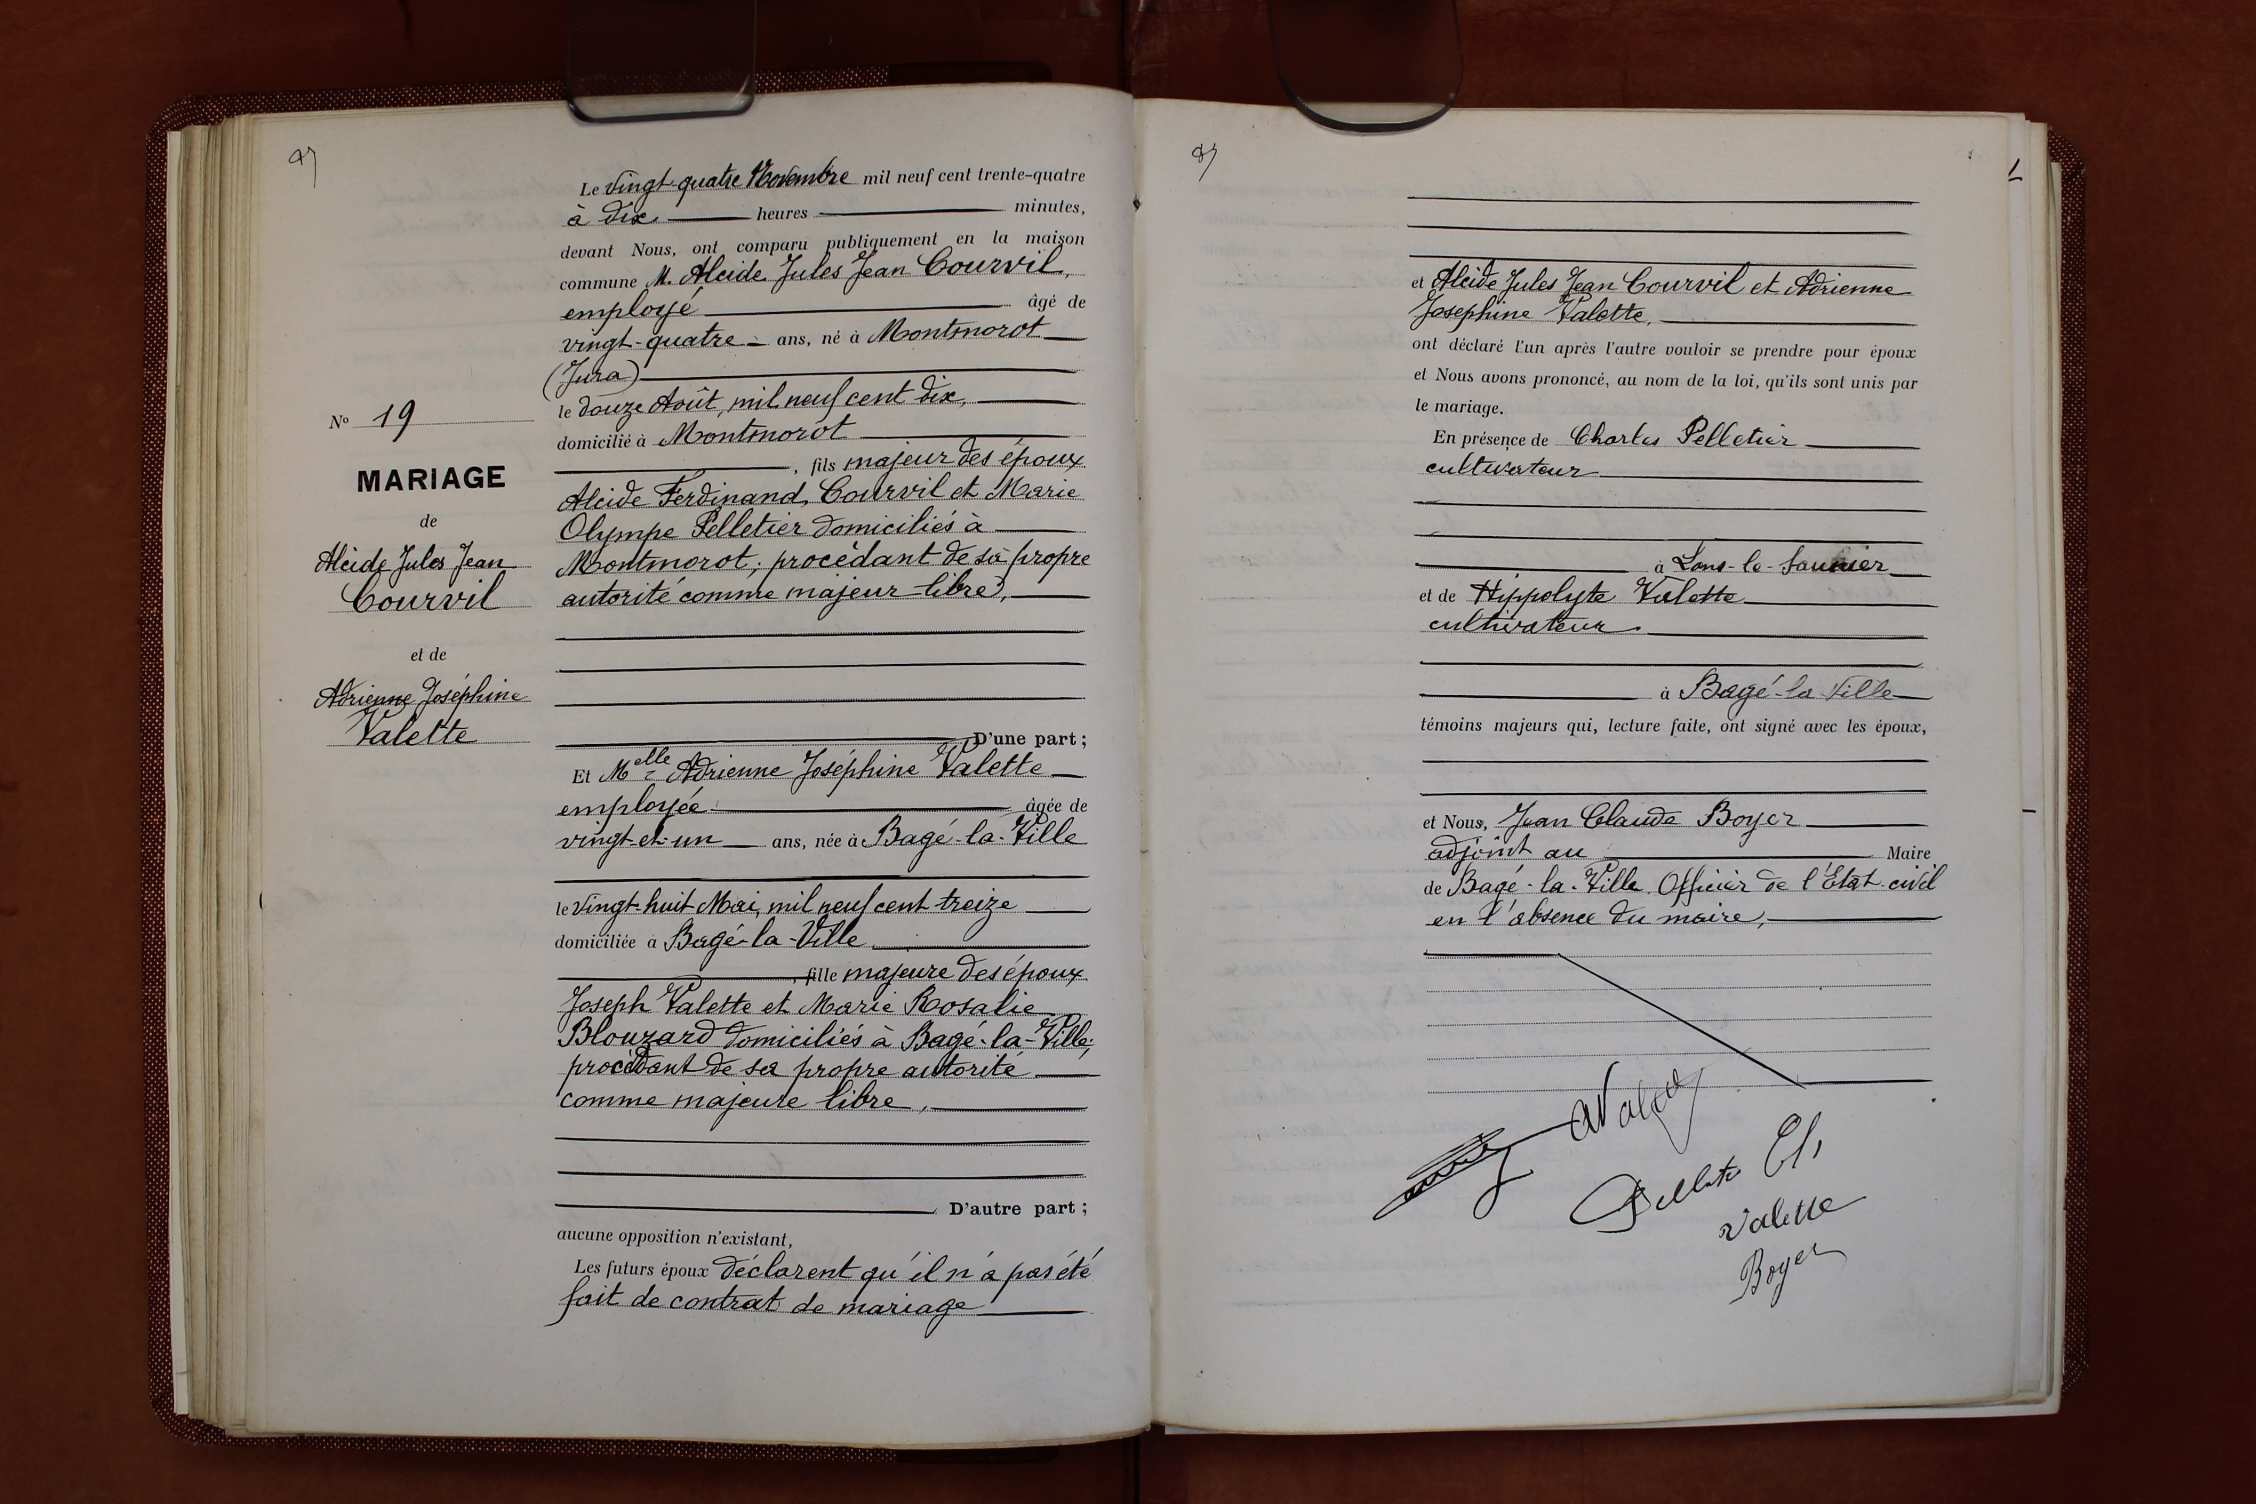 Le vingt-quatre Novembre mil neuf cent trente-quatre
à dix heures minutes,
devant Nous, ont comparu publiquement en la maison
commune M. Alcide Jules Jean Courvil,
employé âgé de
vingt-quatre ans, né à Montmorot
(Jura)
le douze Août, mil neuf cent dix,
domicilié à Montmorot
, fils majeur des époux
Alcide Ferdinand, Courvil et Marie
Olympe Pelletier domiciliés à
Montmorot; procédant de sa propre
autorité comme majeur libre,
D'une part;
Nº 19
MARIAGE
de
Alcide Jules Jean
Courvil
et de
Adrienne Joséphine
Valette
Et Melle Adrienne Joséphine Valette
employée âgée de
vingt-et-un ans, née à Bagé-la-Ville
le vingt-huit Mai, mil neuf cent treize
domiciliée à Bagé-la-Ville
, fille majeure des époux
Joseph Valette et Marie Rosalie
Blouzard domiciliés à Bagé-la-Ville;
procédant de sa propre autorité
comme majeure libre,
D'autre part;
aucune opposition n'existant,
Les futurs époux déclarent qu'il n'a pas été
fait de contrat de mariage
et Alcide Jules Jean Courvil et Adrienne
Josephine Valette,
ont déclaré l'un après l'autre vouloir se prendre pour époux
et Nous avons prononcé, au nom de la loi, qu'ils sont unis par
le mariage.
En présence de Charles Pelletier
cultivateur
à Lons-le-Saunier
et de Hippolyte Valette
cultivateur
à Bagé-la-Ville
témoins majeurs qui, lecture faite, ont signé avec les époux,
et Nous, Jean Claude Boyer
adjoint au Maire
de Bagé-la-Ville Officier de l'État-civil
en l'absence du maire,
Valette
Boyer